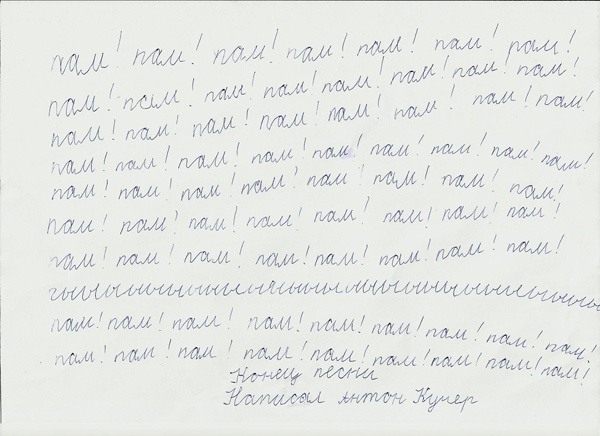 пам! пам! пам! пам! пам! пам! пам!
пам! псем! пам! пам! пам! пам! пам! пам!
пам! пам! пам! пам! пам! пам! пам! пам!
пам! пам! пам! пам! пам! пам! пам! пам! пам!
пам! пам! пам! пам! пам! пам! пам! пам!
пам! пам! пам! пам! пам! пам! пам! пам!
пам! пам! пам! пам! пам! пам! пам! пам!
пам! пам! пам! пам! пам! пам! пам! пам! пам!
пам! пам! пам! пам! пам! пам! пам! пам! пам!
Конец песни
Написал Антон Кучер